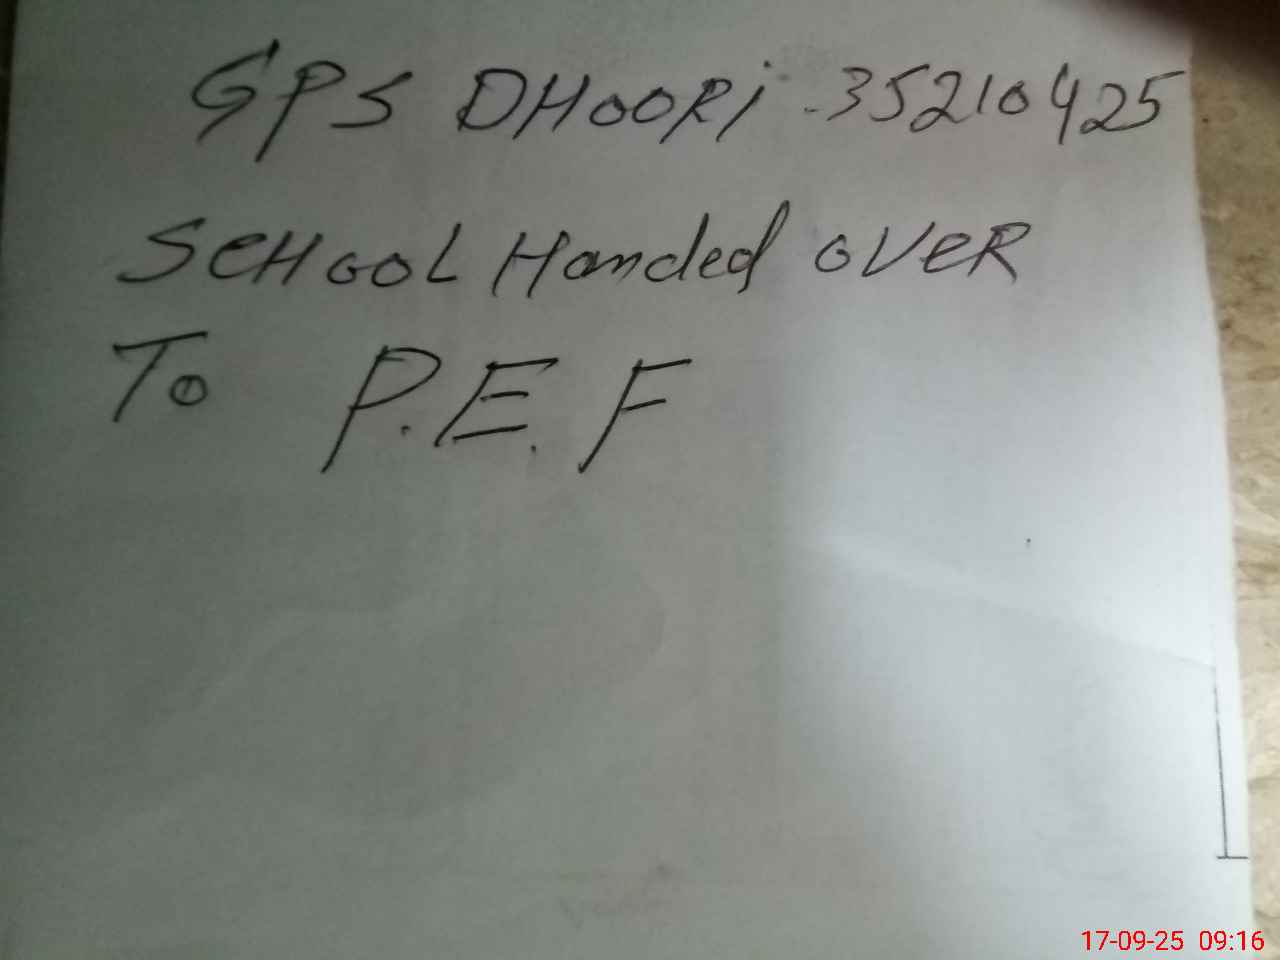 GPS DHOORi - 35210425
SCHOOL Handed OVER
To P.E.F
17-09-25 09:16